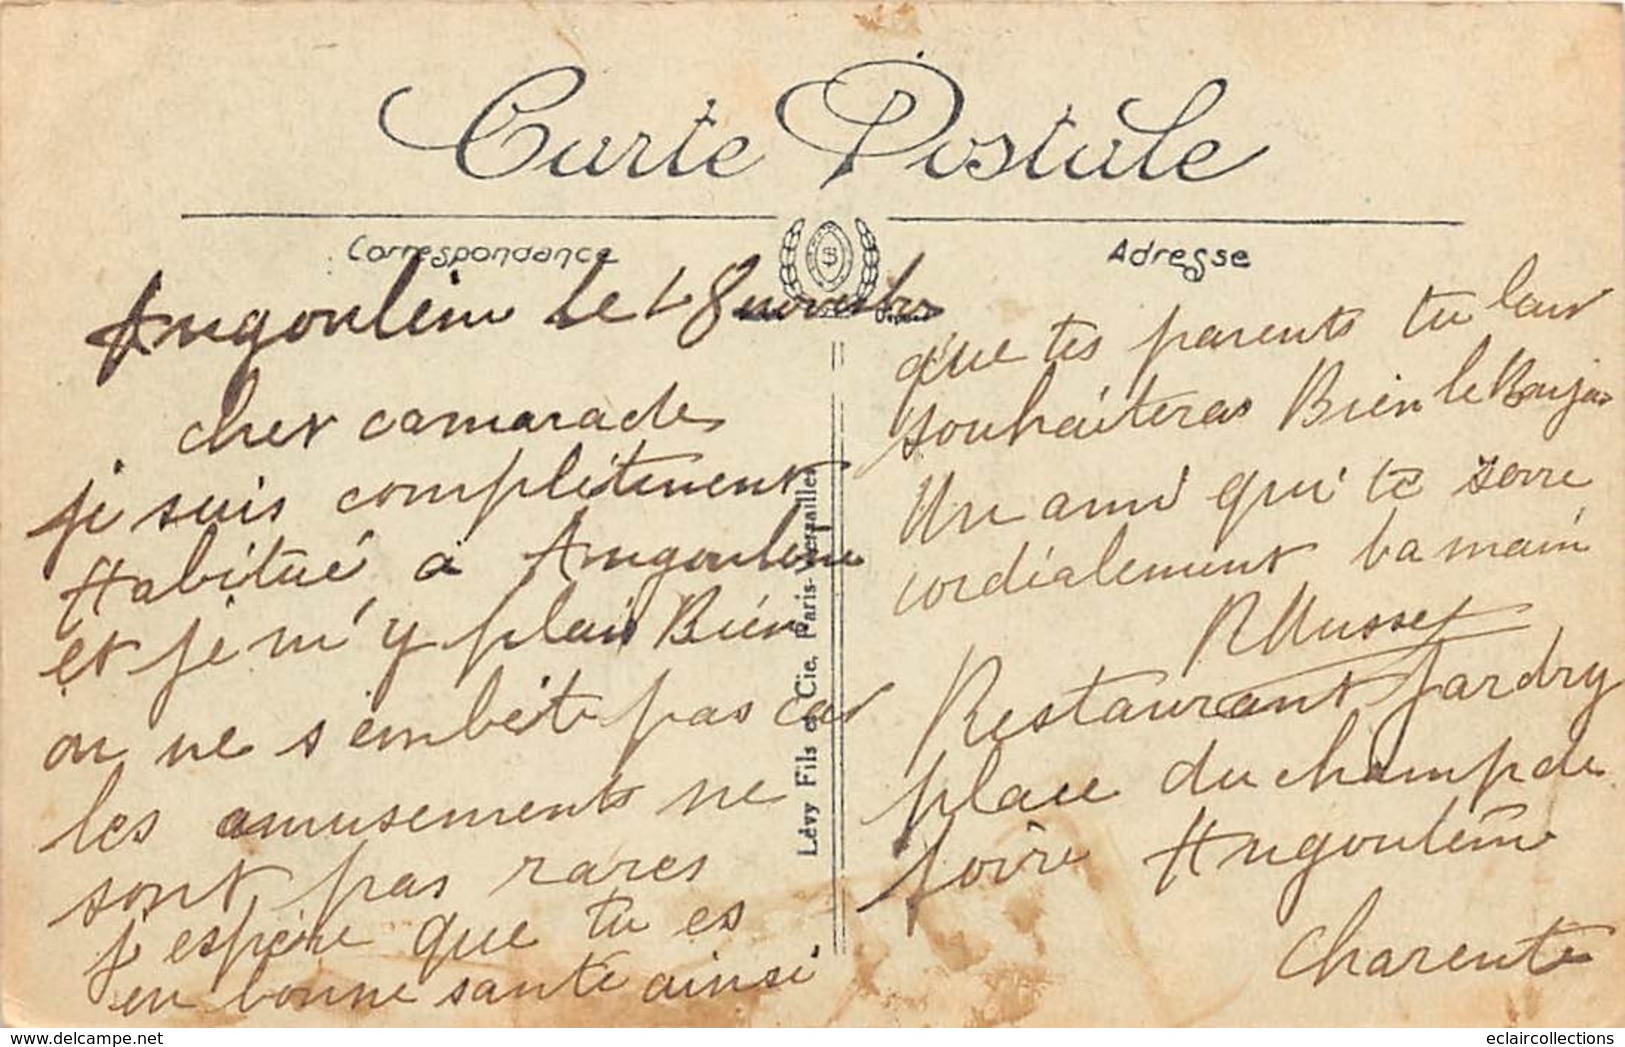 Carte Postale
Correspondance
Adresse
Angoulême le 18 novembre
cher camarade
je suis complètement
Habitué à Angoulême
et je m'y plais Bien
on ne s'embête pas car
les amusements ne
sont pas rares
j'espère que tu es
en bonne santé ainsi
que tes parents tu leur
souhaiteras Bien le Bonjour
Un ami qui te serre
cordialement la main
R Musset
Restaurant Jardry
place du champ de
foire Angoulême
Charente
Lévy Fils et Cie, Paris-Versailles
eclaircollections